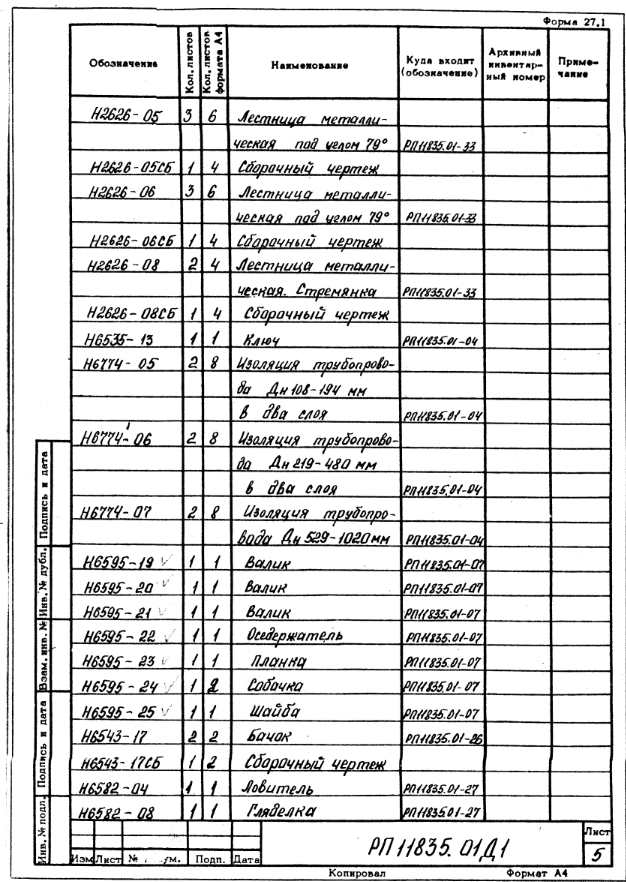 Форма 27.1
Обозначение Кол. листов Кол. листов формата А4 Наименование Куда входит (обозначение) Архивный инвентарный номер Примечание
Н2626-05 3 6 Лестница металли-
ческая под углом 79° РП11835.01-33
Н2626-05СБ 1 4 Сборочный чертеж
Н2626-06 3 6 Лестница металли-
ческая под углом 79° РП11835.01-33
Н2626-06СБ 1 4 Сборочный чертеж
Н2626-08 2 4 Лестница металли-
ческая. Стремянка РП11835.01-33
Н2626-08СБ 1 4 Сборочный чертеж
Н6535-13 1 1 Ключ РП11835.01-04
Н6774-05 2 8 Изоляция трубопрово-
да Дн 108-194 мм
в два слоя РП11835.01-04
Н6774-06 2 8 Изоляция трубопрово-
да Дн 219-480 мм
в два слоя РП11835.01-04
Н6774-07 2 8 Изоляция трубопро-
вода Дн 529-1020 мм РП11835.01-04
Н6595-19 ✓ 1 1 Валик РП11835.01-07
Н6595-20 ✓ 1 1 Валик РП11835.01-07
Н6595-21 ✓ 1 1 Валик РП11835.01-07
Н6595-22 ✓ 1 1 Оседержатель РП11835.01-07
Н6595-23 ✓ 1 1 Планка РП11835.01-07
Н6595-24 ✓ 1 2 Собачка РП11835.01-07
Н6595-25 ✓ 1 1 Шайба РП11835.01-07
Н6543-17 2 2 Бачок РП11835.01-26
Н6543-17СБ 1 2 Сборочный чертеж
Н6582-04 1 1 Ловитель РП11835.01-27
Н6582-08 1 1 Гляделка РП11835.01-27
Инв. № подл. Подпись и дата Взам. инв. № Инв. № дубл. Подпись и дата
Изм Лист № Подп. Дата
РП 11835.01Д1
Лист
5
Копировал Формат А4